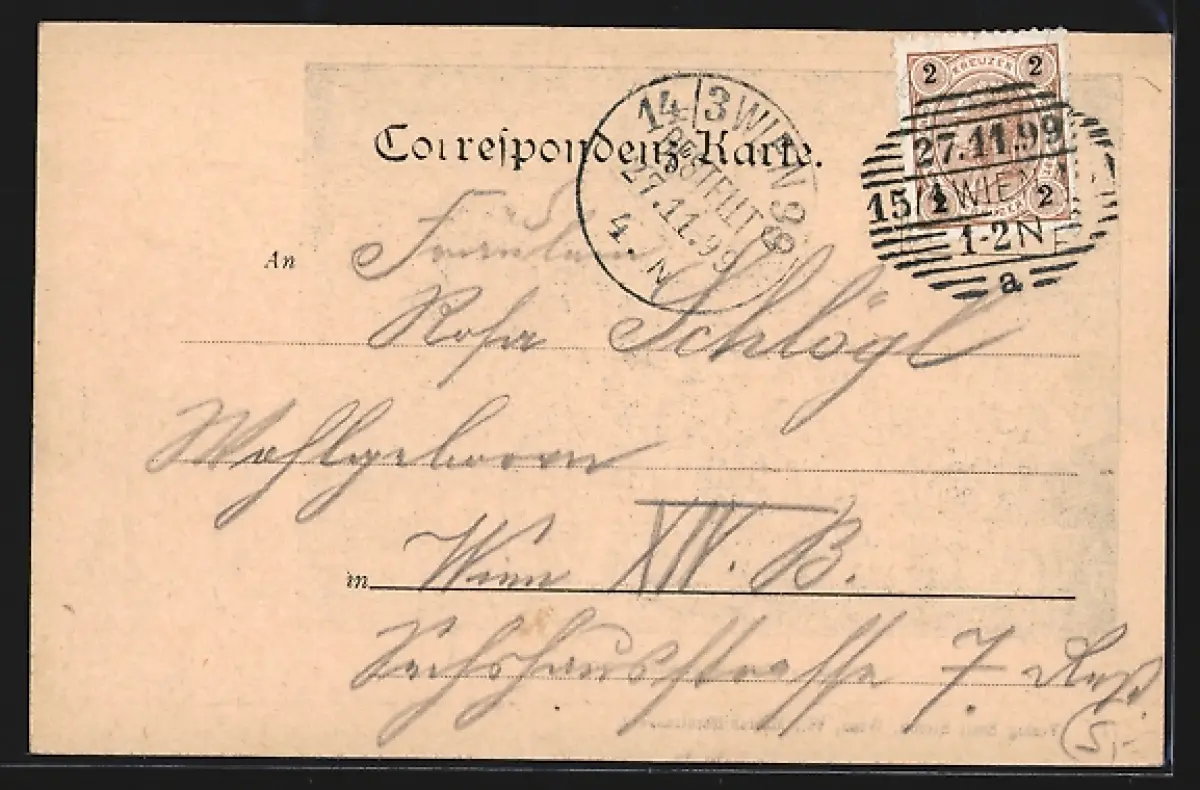 Correspondenz-Karte.
14/3 WIEN 39
BESTELLT
27.11.99
4. N
2 KREUZER 2
2 2
27.11.99
15/1 WIEN
1-2N
a
An
Fräulein
Rosa Schlögl
Wohlgeboren
in Wien XIV. B.
Sechshausstrasse 7
5,-